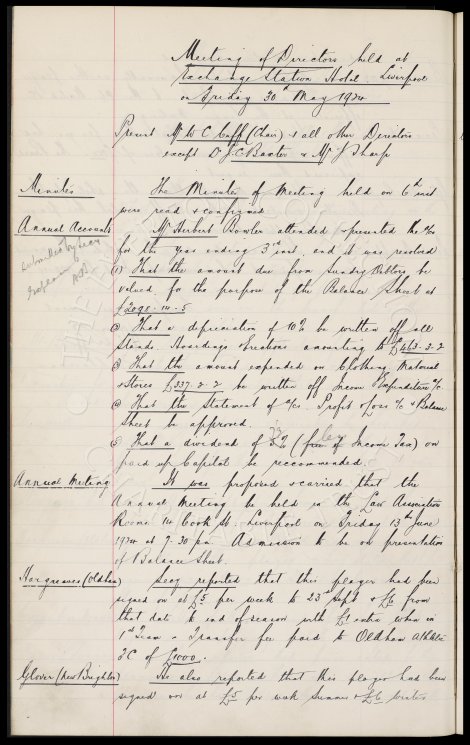 Meeting of Directors held at
Exchange Station Hotel Liverpool
on Friday 30th May 1924
Present Mr W C Cuff (Chair) & all other Directors
except Dr J C Baxter & Mr J Sharp
Minutes
The Minutes of Meeting held on 6th inst
were read & confirmed
Annual Accounts
Mr Herbert Bowler attended & presented the a/cs
for the year ending 3rd inst, and it was resolved
(1) That the amount due from Sundry Debtors be
valued for the purpose of the Balance Sheet at
£2098-14-5
(2) That a depreciation of 10% be written off all
Stands Hoardings & Erections amounting to £463-3-2
(3) That the amount expended on Clothing Material
& Stores £337-2-2 be written off Income & Expenditure a/c
(4) That the Statement of a/cs. Profit & Loss a/c & Balance
Sheet be approved.
(5) That a dividend of % (Income Tax) on
paid up Capital be recommended.
Annual Meeting
It was proposed & carried that the
Annual Meeting be held in the Law Association
Rooms 14 Cook St. Liverpool on Friday 13th June
1924 at 7-30 pm. Admission to be on presentation
of Balance Sheet.
Hargreaves (Oldham)
Secy reported that this player had been
signed on at £5 per week to 23rd Sept & £6 from
that date to end of season with £1 extra when in
1st Team - Transfer fee paid to Oldham Athletic
FC of £1000.
Glover (New Brighton)
He also reported that this player had been
signed on at £5 per week Summer & £6 winter